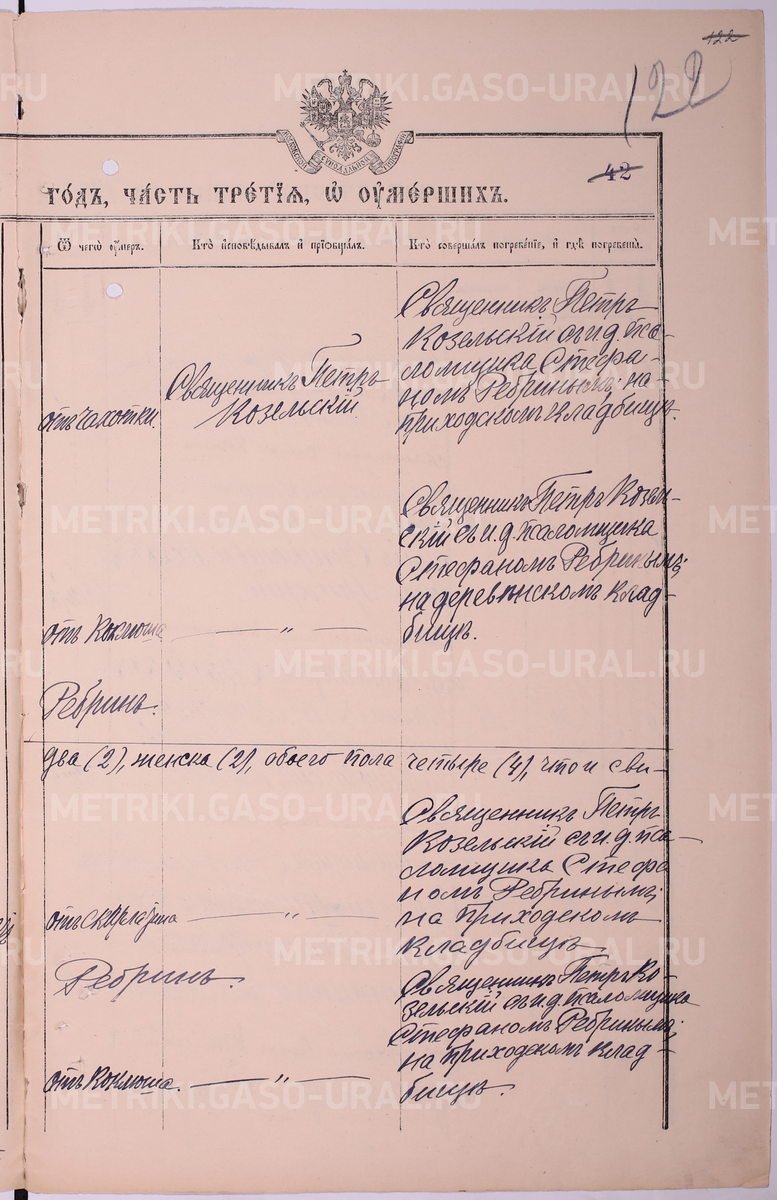 122
122
42
годъ, часть третїѧ, ѡ оумершихъ.
Ѿ чегѡ оумеръ.
Кто исповѣдывалъ и прїобщалъ.
Кто совершалъ погребенїе, и гдѣ погребены.
отъ чахотки.
Священникъ Петръ
Козельскій.
Священникъ Петръ
Козельскій съ и. д. пса-
ломщика Стефа-
номъ Ребринымъ; на
приходскомъ кладбищѣ.
отъ коклюша
— „ —
Священникъ Петръ Козель-
скій съ и. д. псаломщика
Стефаномъ Ребринымъ;
на деревенскомъ клад-
бищѣ.
Ребринъ.
два (2), женска (2), обоего пола четыре (4), что и сви-
отъ скарлатина
— „ —
Священникъ Петръ
Козельскій съ и. д. пса-
ломщика Стефа
номъ Ребринымъ;
на приходскомъ
кладбищѣ.
Ребринъ.
отъ коклюша.
— „ —
Священникъ Петръ Ко-
зельскій съ и. д. псаломщика
Стефаномъ Ребринымъ;
на приходскомъ клад-
бищѣ.
METRIKI.GASO-URAL.RU